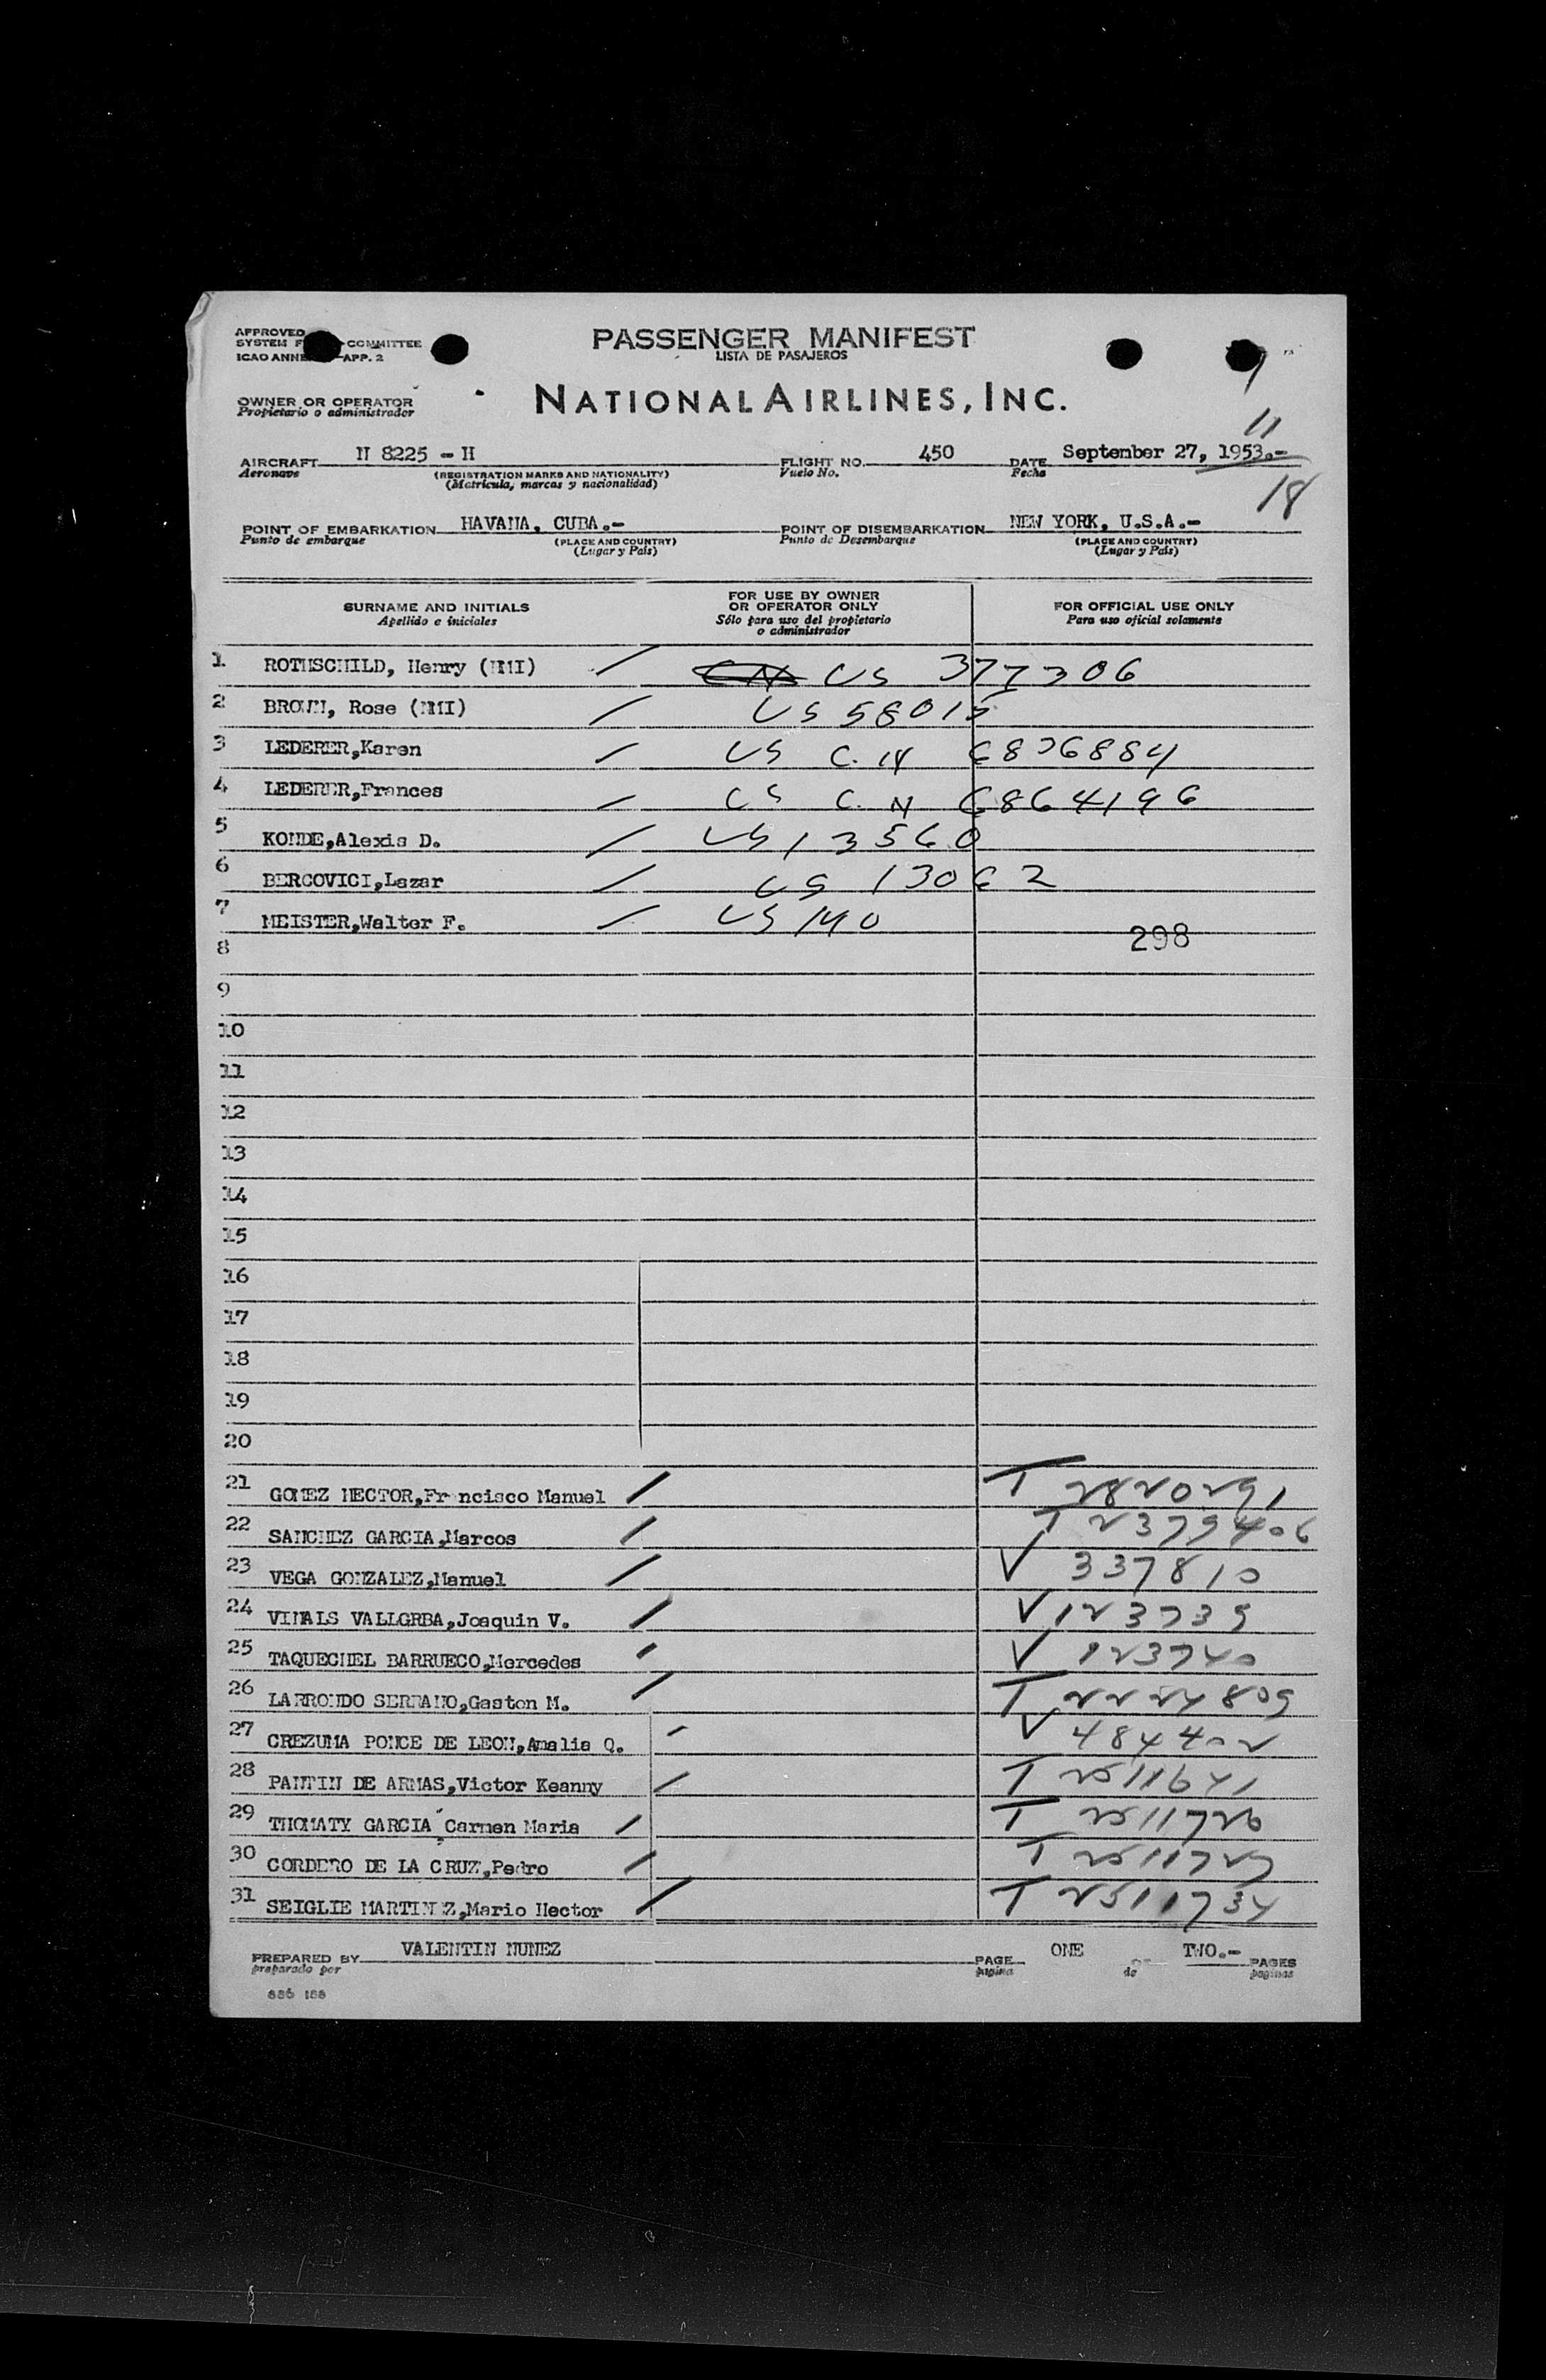 APPROVED
SYSTEM COMMITTEE
ICAO APP. 2
PASSENGER MANIFEST
LISTA DE PASAJEROS
OWNER OR OPERATOR
Propietario o administrador
NATIONAL AIRLINES, INC.
11
AIRCRAFT N 8225 - H FLIGHT NO. 450 DATE September 27, 1953.-
Aeronave (REGISTRATION MARKS AND NATIONALITY) Vuelo No. Fecha
(Matrícula, marcas y nacionalidad)
18
POINT OF EMBARKATION HAVANA, CUBA.- POINT OF DISEMBARKATION NEW YORK, U.S.A.-
Punto de embarque (PLACE AND COUNTRY) Punto de Desembarque (PLACE AND COUNTRY)
(Lugar y País) (Lugar y País)
SURNAME AND INITIALS FOR USE BY OWNER OR OPERATOR ONLY FOR OFFICIAL USE ONLY
Apellido e iniciales Sólo para uso del propietario o administrador Para uso oficial solamente
1 ROTHSCHILD, Henry (NMI) US 377306
2 BROWN, Rose (NMI) US 58015
3 LEDERER,Karen US C.N 6836884
4 LEDERER,Frances US C.N 6864196
5 KONDE,Alexis D. US 13560
6 BERCOVICI,Lazar US 13062
7 MEISTER,Walter F. US 140
8 298
9
10
11
12
13
14
15
16
17
18
19
20
21 GOMEZ HECTOR,Francisco Manuel T 2820291
22 SANCHEZ GARCIA,Marcos T 2379406
23 VEGA GONZALEZ,Manuel V 337810
24 VINALS VALLORBA,Joaquin V. V 123739
25 TAQUECHEL BARRUECO,Mercedes V 123740
26 LARRONDO SERRANO,Gaston M. T 2224809
27 CREZUMA PONCE DE LEON,Amalia Q. V 484402
28 PANTIN DE ARMAS,Victor Keanny T 2511641
29 THOMATY GARCIA,Carmen Maria T 2511726
30 CORDERO DE LA CRUZ,Pedro T 2511727
31 SEIGLIE MARTINEZ,Mario Hector T 2511734
PREPARED BY VALENTIN NUNEZ PAGE ONE OF TWO.- PAGES
preparado por pagina de paginas